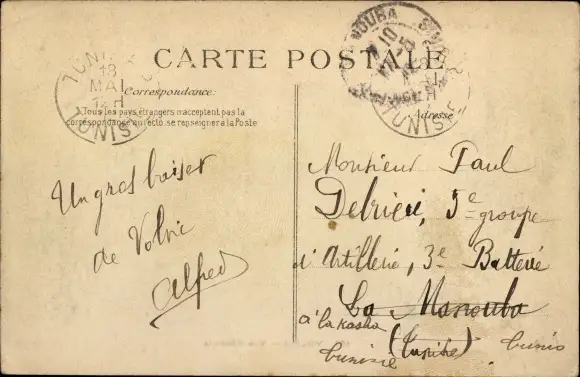 CARTE POSTALE
Correspondance
Tous les pays étrangers n'acceptent pas la
correspondance au recto, se renseigner à la Poste
Adresse
TUNIS
18
MAI
TUNISIE
MANOUBA
TUNISIE
Un gros baiser
de Volvic
Alfred
Monsieur Paul
5e groupe
d'Artillerie, 3e Batterie
La Manouba
à la Kasba
(Tunisie)
tunisie
tunis